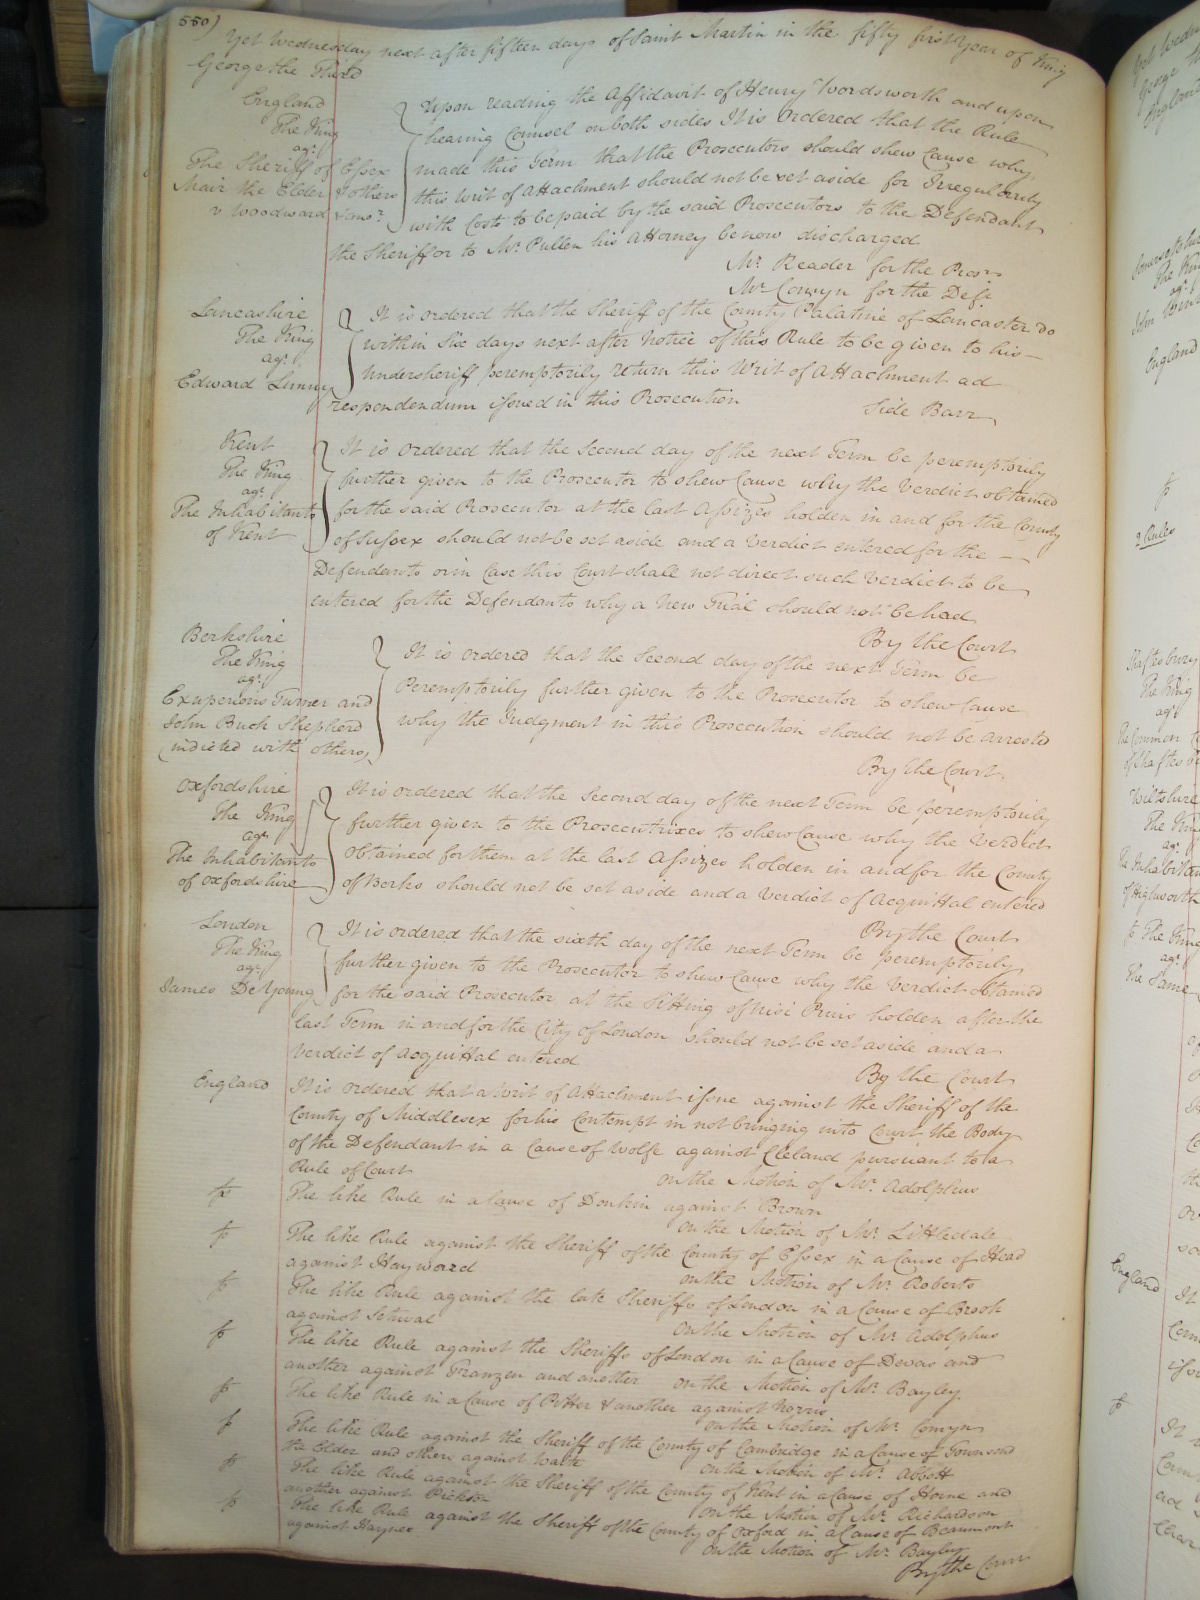 550)
Yet Wednesday next after fifteen days of Saint Martin in the fifty first Year of King
George the Third
England
The King
agt
The Sheriff of Essex
Mair the Elder & others
v Woodward & anr
Upon reading the Affidavit of Henry Wordsworth and upon
hearing Counsel on both sides It is Ordered that the Rule
made this Term that the Prosecutors should shew Cause why
this Writ of Attachment should not be set aside for Irregularity
with Costs to be paid by the said Prosecutors to the Defendant
the Sheriff or to Mr Pullen his Attorney be now discharged
Mr Reader for the Prosrs
Mr Comyn for the Deft
Lancashire
The King
agt
Edward Linny
It is ordered that the Sheriff of the County Palatine of Lancaster do
within Six days next after Notice of this Rule to be given to his
Undersheriff peremptorily return this Writ of Attachment ad
respondendum issued in this Prosecution
Side Barr
Kent
The King
agt
The Inhabitants
of Kent
It is ordered that the Second day of the next Term be peremptorily
further given to the Prosecutor to shew Cause why the Verdict obtained
for the said Prosecutor at the last Assizes holden in and for the County
of Sussex should not be set aside and a Verdict entered for the
Defendants or in Case this Court shall not direct such Verdict to be
entered for the Defendants why a New Trial should not be had
By the Court
Berkshire
The King
agt
Exuperious Turner and
John Buck Shepherd
(indicted with others)
It is ordered that the Second day of the next Term be
Peremptorily further given to the Prosecutor to shew Cause
why the Judgment in this Prosecution should not be arrested
By the Court
Oxfordshire
The King
agt
The Inhabitants
of Oxfordshire
It is ordered that the Second day of the next Term be peremptorily
further given to the Prosecutrixes to shew Cause why the Verdict
obtained for them at the last Assizes holden in and for the County
of Berks should not be set aside and a Verdict of Acquittal entered
By the Court
London
The King
agt
James De Young
It is ordered that the sixth day of the next Term be peremptorily
further given to the Prosecutor to shew Cause why the Verdict obtained
for the said Prosecutor at the Sitting of Nisi Prius holden after the
last Term in and for the City of London should not be set aside and a
Verdict of Acquittal entered
By the Court
England
It is ordered that a Writ of Attachment issue against the Sheriff of the
County of Middlesex for his Contempt in not bringing into Court the Body
of the Defendant in a Cause of Wolfe against Cleland pursuant to a
Rule of Court
On the Motion of Mr Adolphus
The like Rule in a Cause of Donkin against Brown
On the Motion of Mr Littledale
The like Rule against the Sheriff of the County of Essex in a Cause of Head
against Hayward
On the Motion of Mr Roberts
The like Rule against the late Sheriffs of London in a Cause of Brook
against
On the Motion of Mr Adolphus
The like Rule against the Sheriffs of London in a Cause of Devas and
another against Franzen and another
On the Motion of Mr Bayley
The like Rule in a Cause of Potter & another against Norris
On the Motion of Mr Comyn
The like Rule against the Sheriff of the County of Cambridge in a Cause of Townsend
the Elder and others against Waite
On the Motion of Mr Abbott
The like Rule against the Sheriff of the County of Kent in a Cause of Horne and
another against Pickton
On the Motion of Mr Richardson
The like Rule against the Sheriff of the County of Oxford in a Cause of Beaumont
against Haynes
On the Motion of Mr Bayley
By the Court